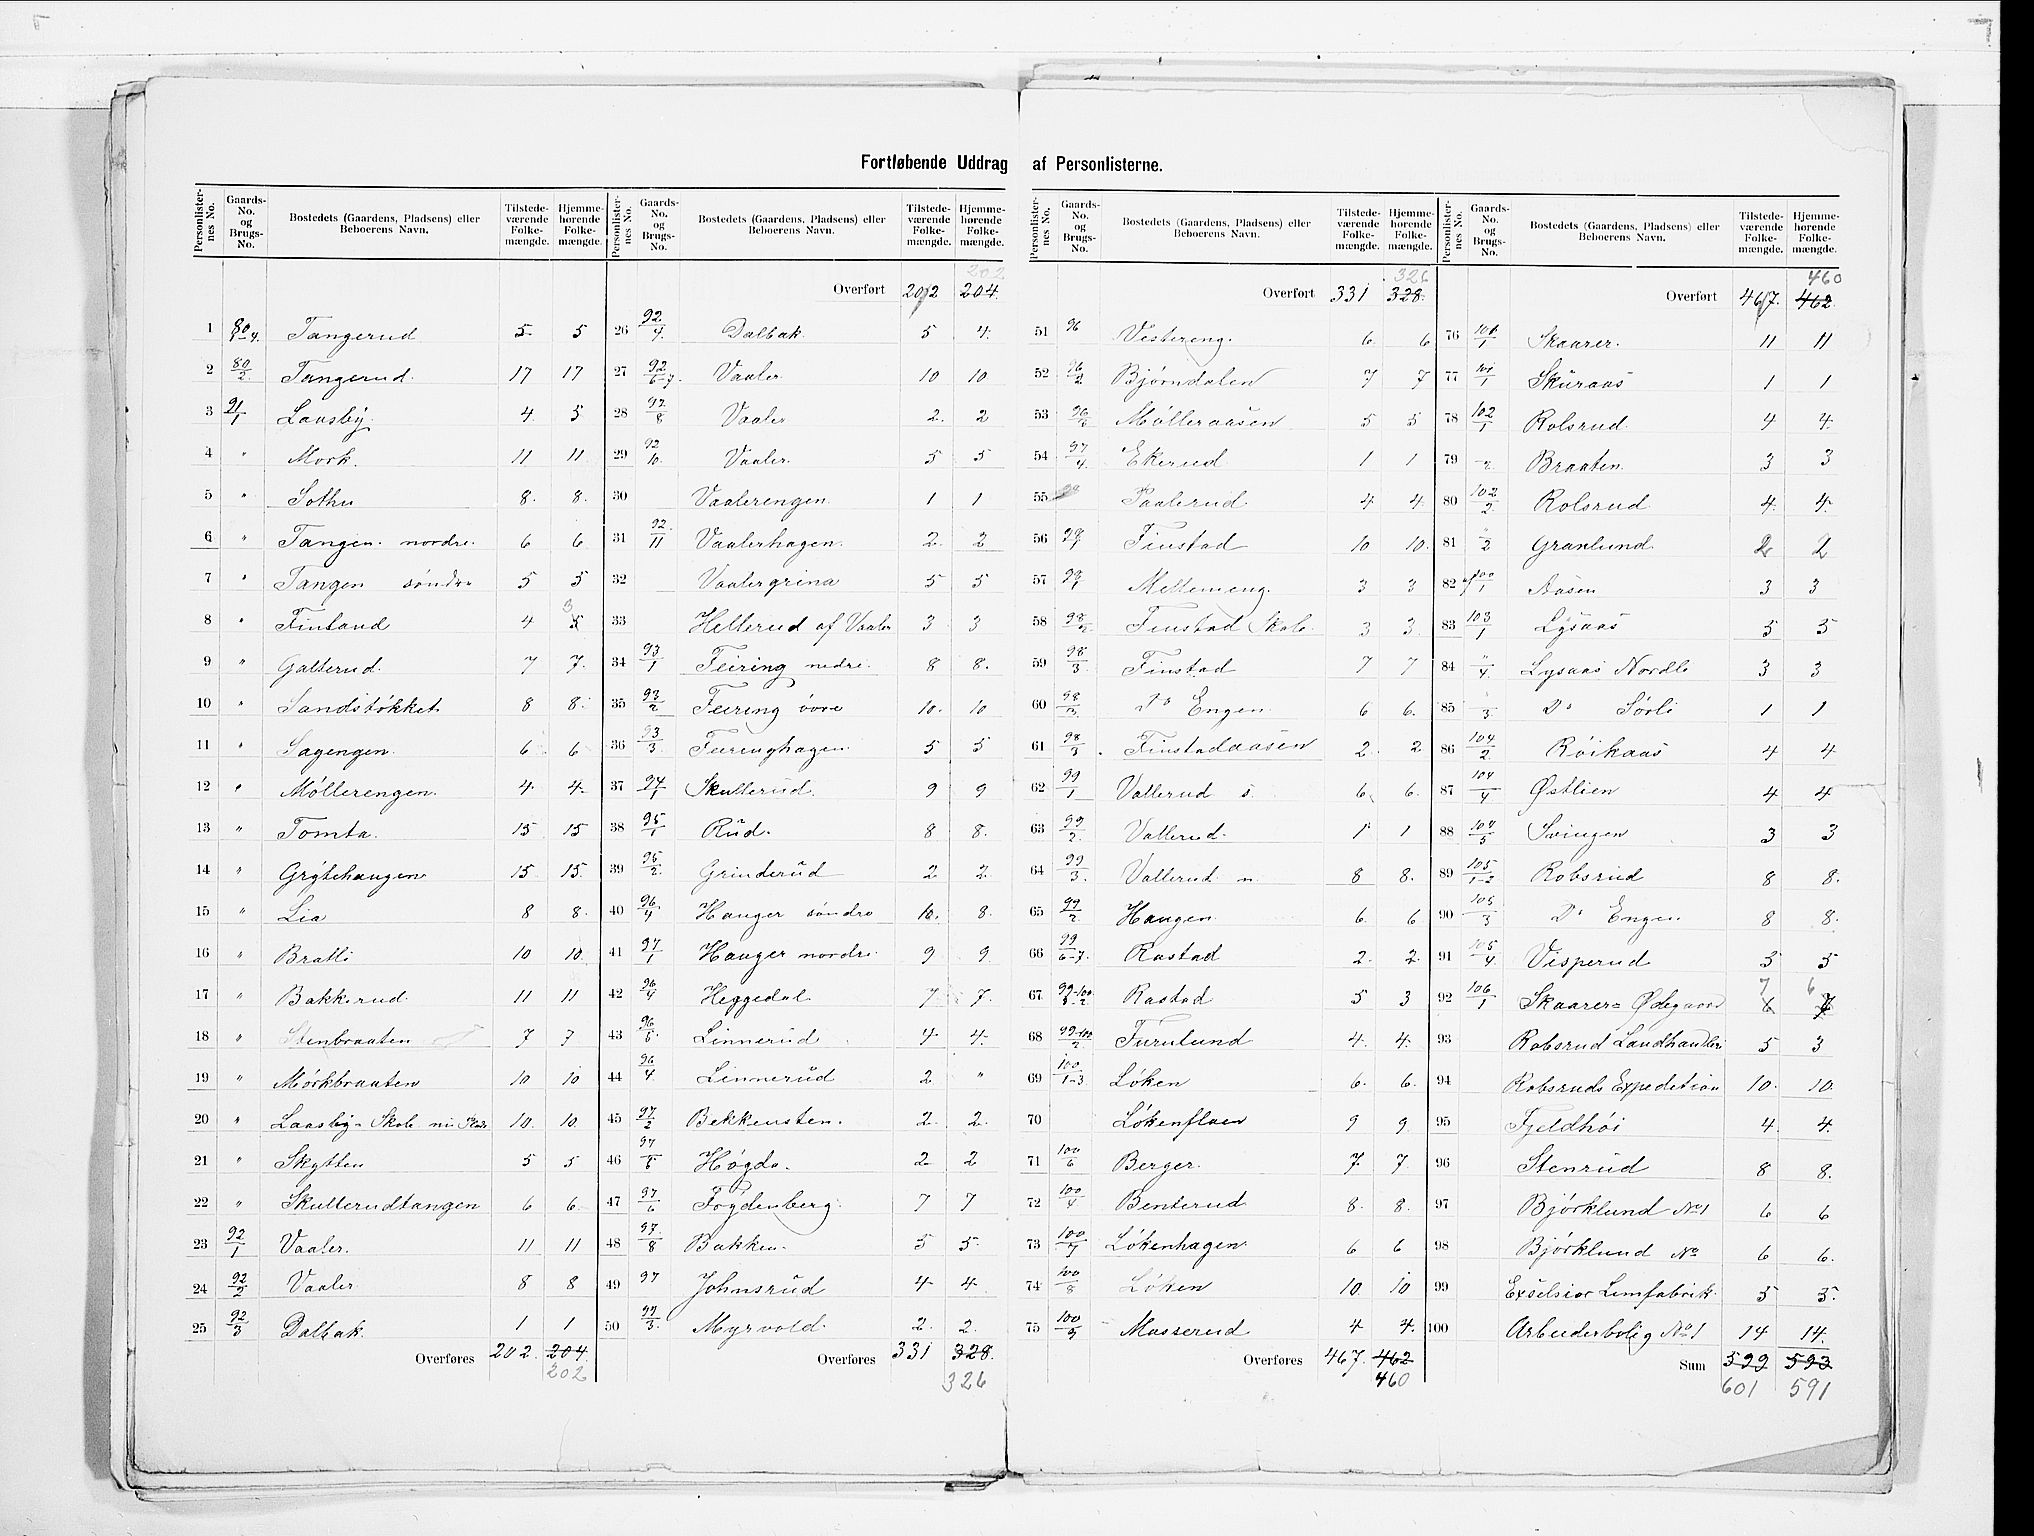 Fortløbende Uddrag af Personlisterne.
Personlister-nes No. | Gaards-No. og Brugs-No. | Bostedets (Gaardens, Pladsens) eller Beboerens Navn. | Tilstede-værende Folke-mængde. | Hjemme-hørende Folke-mængde.
1 80/1-4. Tangerud 5 5
2 80/2 Tangerud. 17 17
3 91/1 Laasby 4 5
4 " Mork. 11 11
5 " Sothu 8. 8.
6 " Tangen nordre. 6 6
7 " Tangen søndre 5 5
8 " Finland 4 5 3
9 " Galterud. 7 7.
10 " Sandstøkket 8 8.
11 " Sagengen. 6 6
12 " Møllerengen. 4 4
13 " Tomta. 15 15
14 " Grytehaugen 15 15.
15 " Lia 8 8.
16 " Bratli 10 10.
17 " Bakkerud. 11 11
18 " Stenbraaten 7 7
19 " Mørkbraaten 10 10
20 " Laasby-Skole 10. 10.
21 " Skytten 5 5
22 " Skullerudtangen 6 6.
23 92/1 Vaaler. 11 11
24 92/2 Vaaler 8 8
25 92/3 Dalbak. 1 1
Overføres 202. 204. 202
Personlister-nes No. | Gaards-No. og Brugs-No. | Bostedets (Gaardens, Pladsens) eller Beboerens Navn. | Tilstede-værende Folke-mængde. | Hjemme-hørende Folke-mængde.
202
Overført 202 204.
26 92/4 Dalbak 5 4.
27 92/6-7. Vaaler 10 10
28 92/8 Vaaler 2. 2
29 92/10. Vaaler. 5 5
30 Vaalerengen. 1 1
31 92/11 Vaalerhagen. 2. 2
32 Vaalergrina 5 5
33 Hellerud af Vaaler 3 3
34 93/1 Feiring nedre. 8 8.
35 93/2 Feiring øvre 10. 10
36 93/3 Feiringhagen 5 5
37 94/1 Skullerud. 9 9
38 95/1 Rud. 8 8.
39 95/2 Grinderud 2 2.
40 96/4 Hauger søndre 10. 8.
41 97/1 Hauger nordre. 9 9.
42 96/4 Heggedal 7 7.
43 96/5 Linnerud 4 4.
44 96/4 Linnerud 2. "
45 97/2 Bekkensten. 2. 2.
46 97/5 Høgda. 2 2
47 97/6 Fogdenberg. 7 7
48 97/8 Bakken. 5 5.
49 97 Johnsrud 4 4.
50 97/3. Myrvold. 2. 2.
Overføres 331 328. 326
Personlister-nes No. | Gaards-No. og Brugs-No. | Bostedets (Gaardens, Pladsens) eller Beboerens Navn. | Tilstede-værende Folke-mængde. | Hjemme-hørende Folke-mængde.
326
Overført 331 328.
51 96 Vestereng. 6. 6
52 96/2 Bjørndalen 7 7
53 96 Mølleraasen 5 5
54 97/4 Ekerud 1 1
55 Paalerud 4 4.
56 Finstad 10 10.
57 98/1 Mellemeng. 3 3
58 98/2 Finstad Skole. 3 3.
59 98/3 Finstad 7 7
60 98/3 Do Engen 6 6.
61 98/3 Finstadaasen 2. 2
62 99/1 Vallerud s. 6 6.
63 99/2. Vallerud. 1 1
64 99/3. Vallerud n. 8 8.
65 99/2 Haugen 6. 6
66 99/6-7. Rastad 2. 2
67 Rastad 5 3
68 Furulund 4. 4.
69 100/1-3 Løken 6. 6.
70 Løkenflaen 9 9
71 100/6 Berger. 7 7
72 100/4 Benterud 8. 8.
73 100/7 Løkenhagen 6 6
74 100/8 Løken 10. 10
75 100/9 Masserud 4 4.
Overføres 467. 462 460
Personlister-nes No. | Gaards-No. og Brugs-No. | Bostedets (Gaardens, Pladsens) eller Beboerens Navn. | Tilstede-værende Folke-mængde. | Hjemme-hørende Folke-mængde.
460
Overført 467. 462
76 101/1 Skaarer. 11 11
77 101/1 Skuraas 1 1
78 102/1 Rolsrud. 4 4.
79 Braaten 3 3
80 102/2 Rolsrud 4. 4.
81 "/2 Granlund. 2 2
82 100/1 Aasen 3 3
83 103/1 Lysaas 5 5
84 "/4. Lysaas Nordli 3 3
85 "/3 Do Sørli 1 1
86 104/2 Røikaas 4 4
87 104/4 Østlien 4 4
88 104/5 Svingen 3 3
89 105/1-2 Robsrud 8 8.
90 105/3 Do Engen 8 8.
91 105/4 Visperud 5 5
92 106/1 Skaarer-Ødegaard 6 7 7 6
93 Robsrud Landhandleri 5 3
94 Robsruds Expedition 10. 10.
95 Fjeldhøi 4. 4.
96 Stenrud 8 8.
97 Bjørklund No 1 6 6
98 Bjørklund No 6 6.
99 Exselsior Limfabrik. 5 5.
100 Arbeiderbolig No 1 14 14.
Sum 599 593
601 591